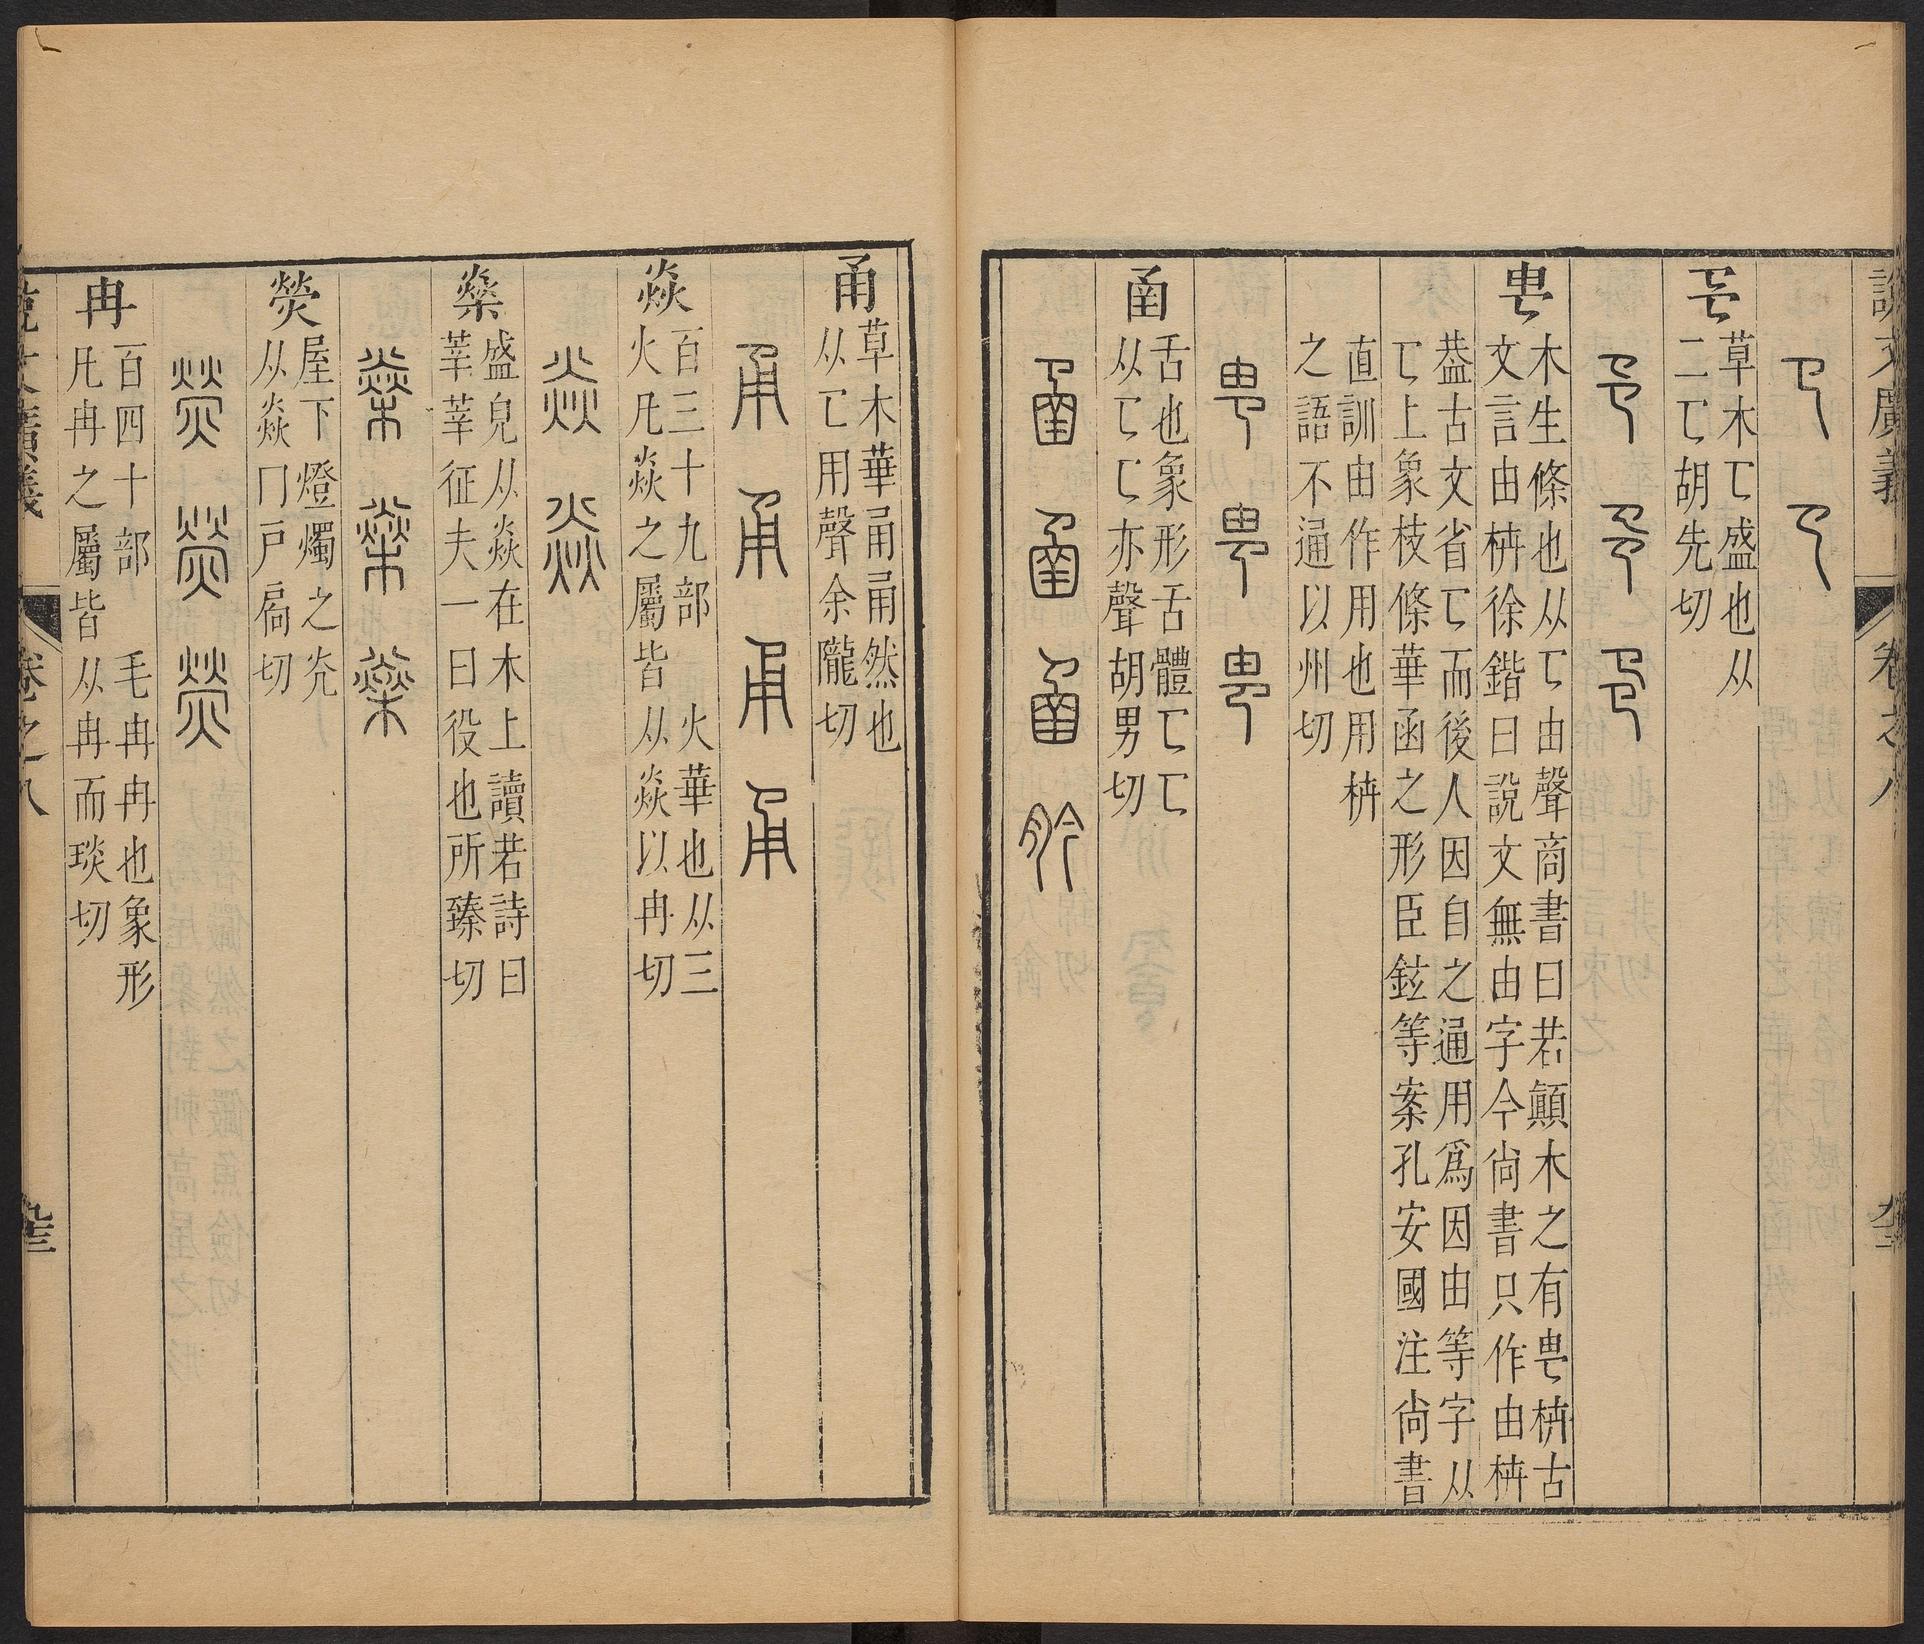 說文廣義 卷之八
𢎘
草木㔾盛也从
二㔾胡先切
㽕
木生條也从㔾由聲商書曰若顚木之有㽕枿古
文言由枿徐鍇曰說文無由字今尙書只作由枿
葢古文省㔾而後人因自之通用爲因由等字从
㔾上象枝條華函之形臣鉉等案孔安國注尙書
直訓由作用也用枿
之語不通以州切
圅
舌也象形舌體㔾㔾
从㔾㔾亦聲胡男切
甬
草木華甬甬然也
从㔾用聲余隴切
焱
百三十九部 火華也从三
火凡焱之屬皆从焱以冉切
燊
盛皃从焱在木上讀若詩曰
莘莘征夫一曰役也所臻切
熒
屋下燈燭之光
从焱冂戸扃切
冉
百四十部 毛冉冉也象形
凡冉之屬皆从冉而琰切
說文廣義 卷之八